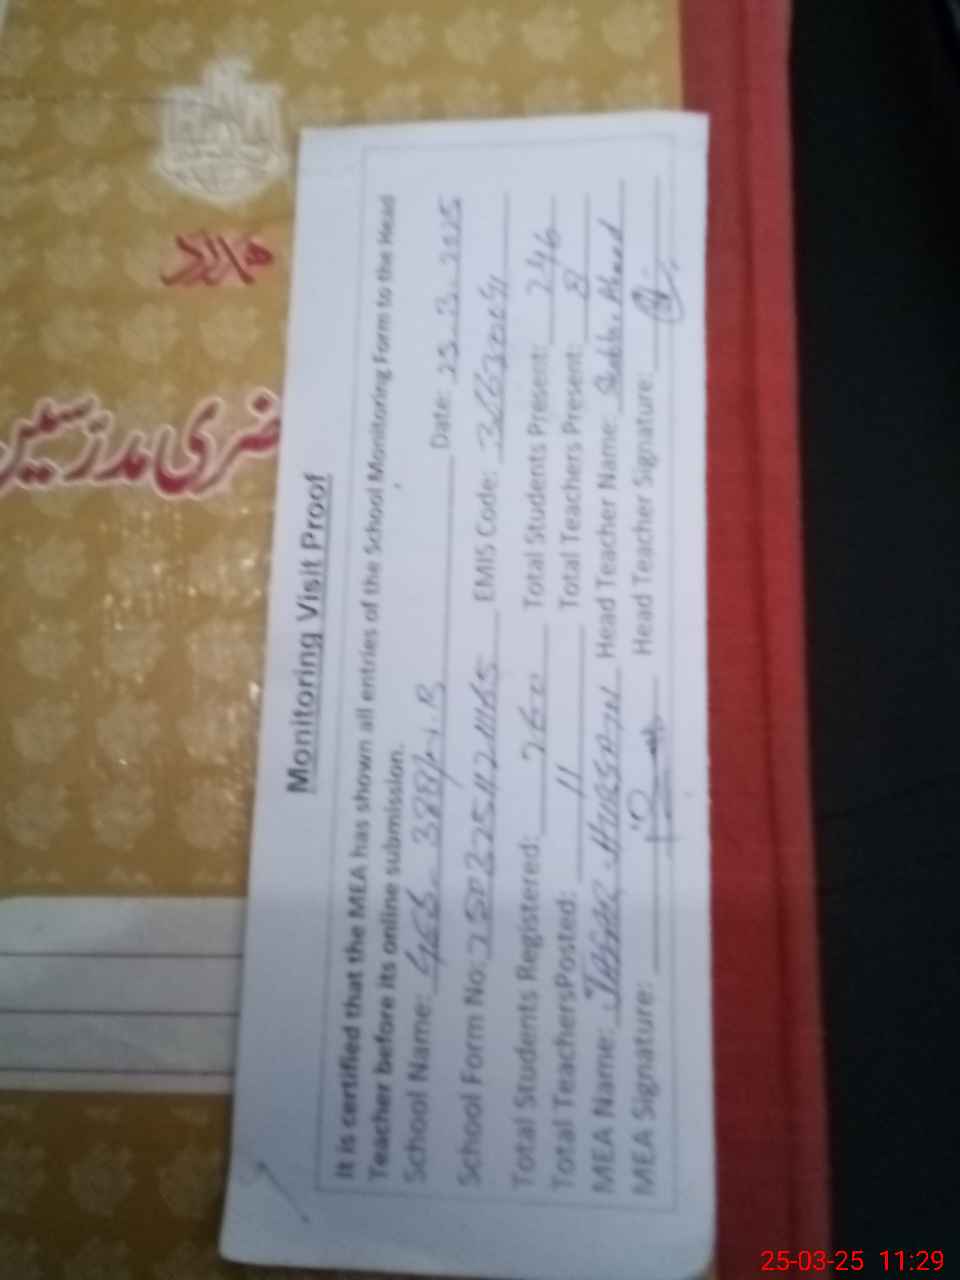 حاضری مدرسین
Monitoring Visit Proof
It is certified that the MEA has shown all entries of the School Monitoring Form to the Head
Teacher before its online submission.
School Name: 388/ Date: 25.3.2025
School Form No: EMIS Code:
Total Students Registered: 260 Total Students Present: 246
Total TeachersPosted: 11 Total Teachers Present: 8
MEA Name: Head Teacher Name: Ahmad
MEA Signature: Head Teacher Signature:
25-03-25 11:29